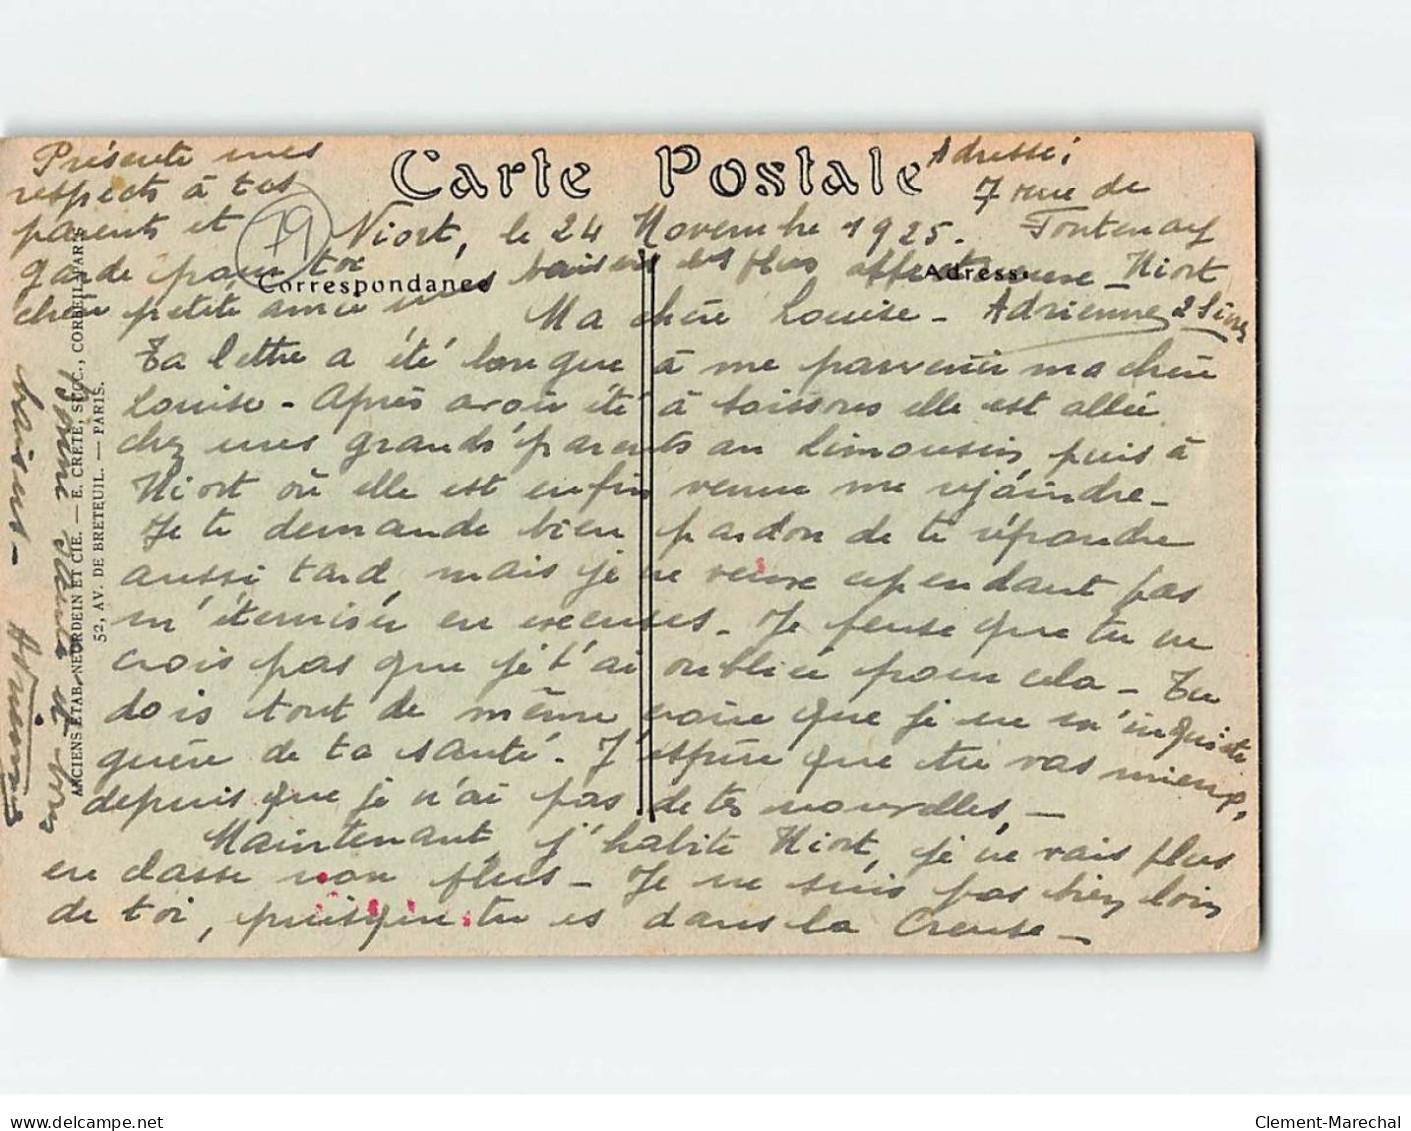 Carte Postale
Niort, le 24 Novembre 1925.
Correspondance
Adresse
Adresse:
7 rue de
Fontenay
Niort
2 Sèvres
Ma chère Louise - Adrienne
Ta lettre a été longue à me parvenir ma chère
Louise - Après avoir été à Soissons elle est allée
chez mes grands'parents au Limousin puis à
Niort où elle est enfin venue me rejoindre -
Je te demande bien pardon de te répondre
aussi tard, mais je ne veux cependant pas
m'éterniser en excuses - Je pense que tu ne
crois pas que je t'ai oubliée pour cela - Tu
dois tout de même croire que je ne m'inquiète
guère de ta santé. J'espère que tu vas mieux,
depuis que je n'ai pas de tes nouvelles, -
Maintenant, j'habite Niort, je ne vais plus
en classe non plus - Je ne suis pas bien loin
de toi, puisque tu es dans la Creuse -
Présente mes
respects à tes
parents et
garde pour toi
chère petite amie mes baisers les plus
79
Bonne santé et bons
baisers - Adrienne
ANCIENS ETAB. NEURDEIN ET CIE. — E. CRÉTÉ, SUCC., CORBEIL-PARIS
52, AV. DE BRETEUIL. — PARIS.
Clement-Marechal
www.delcampe.net